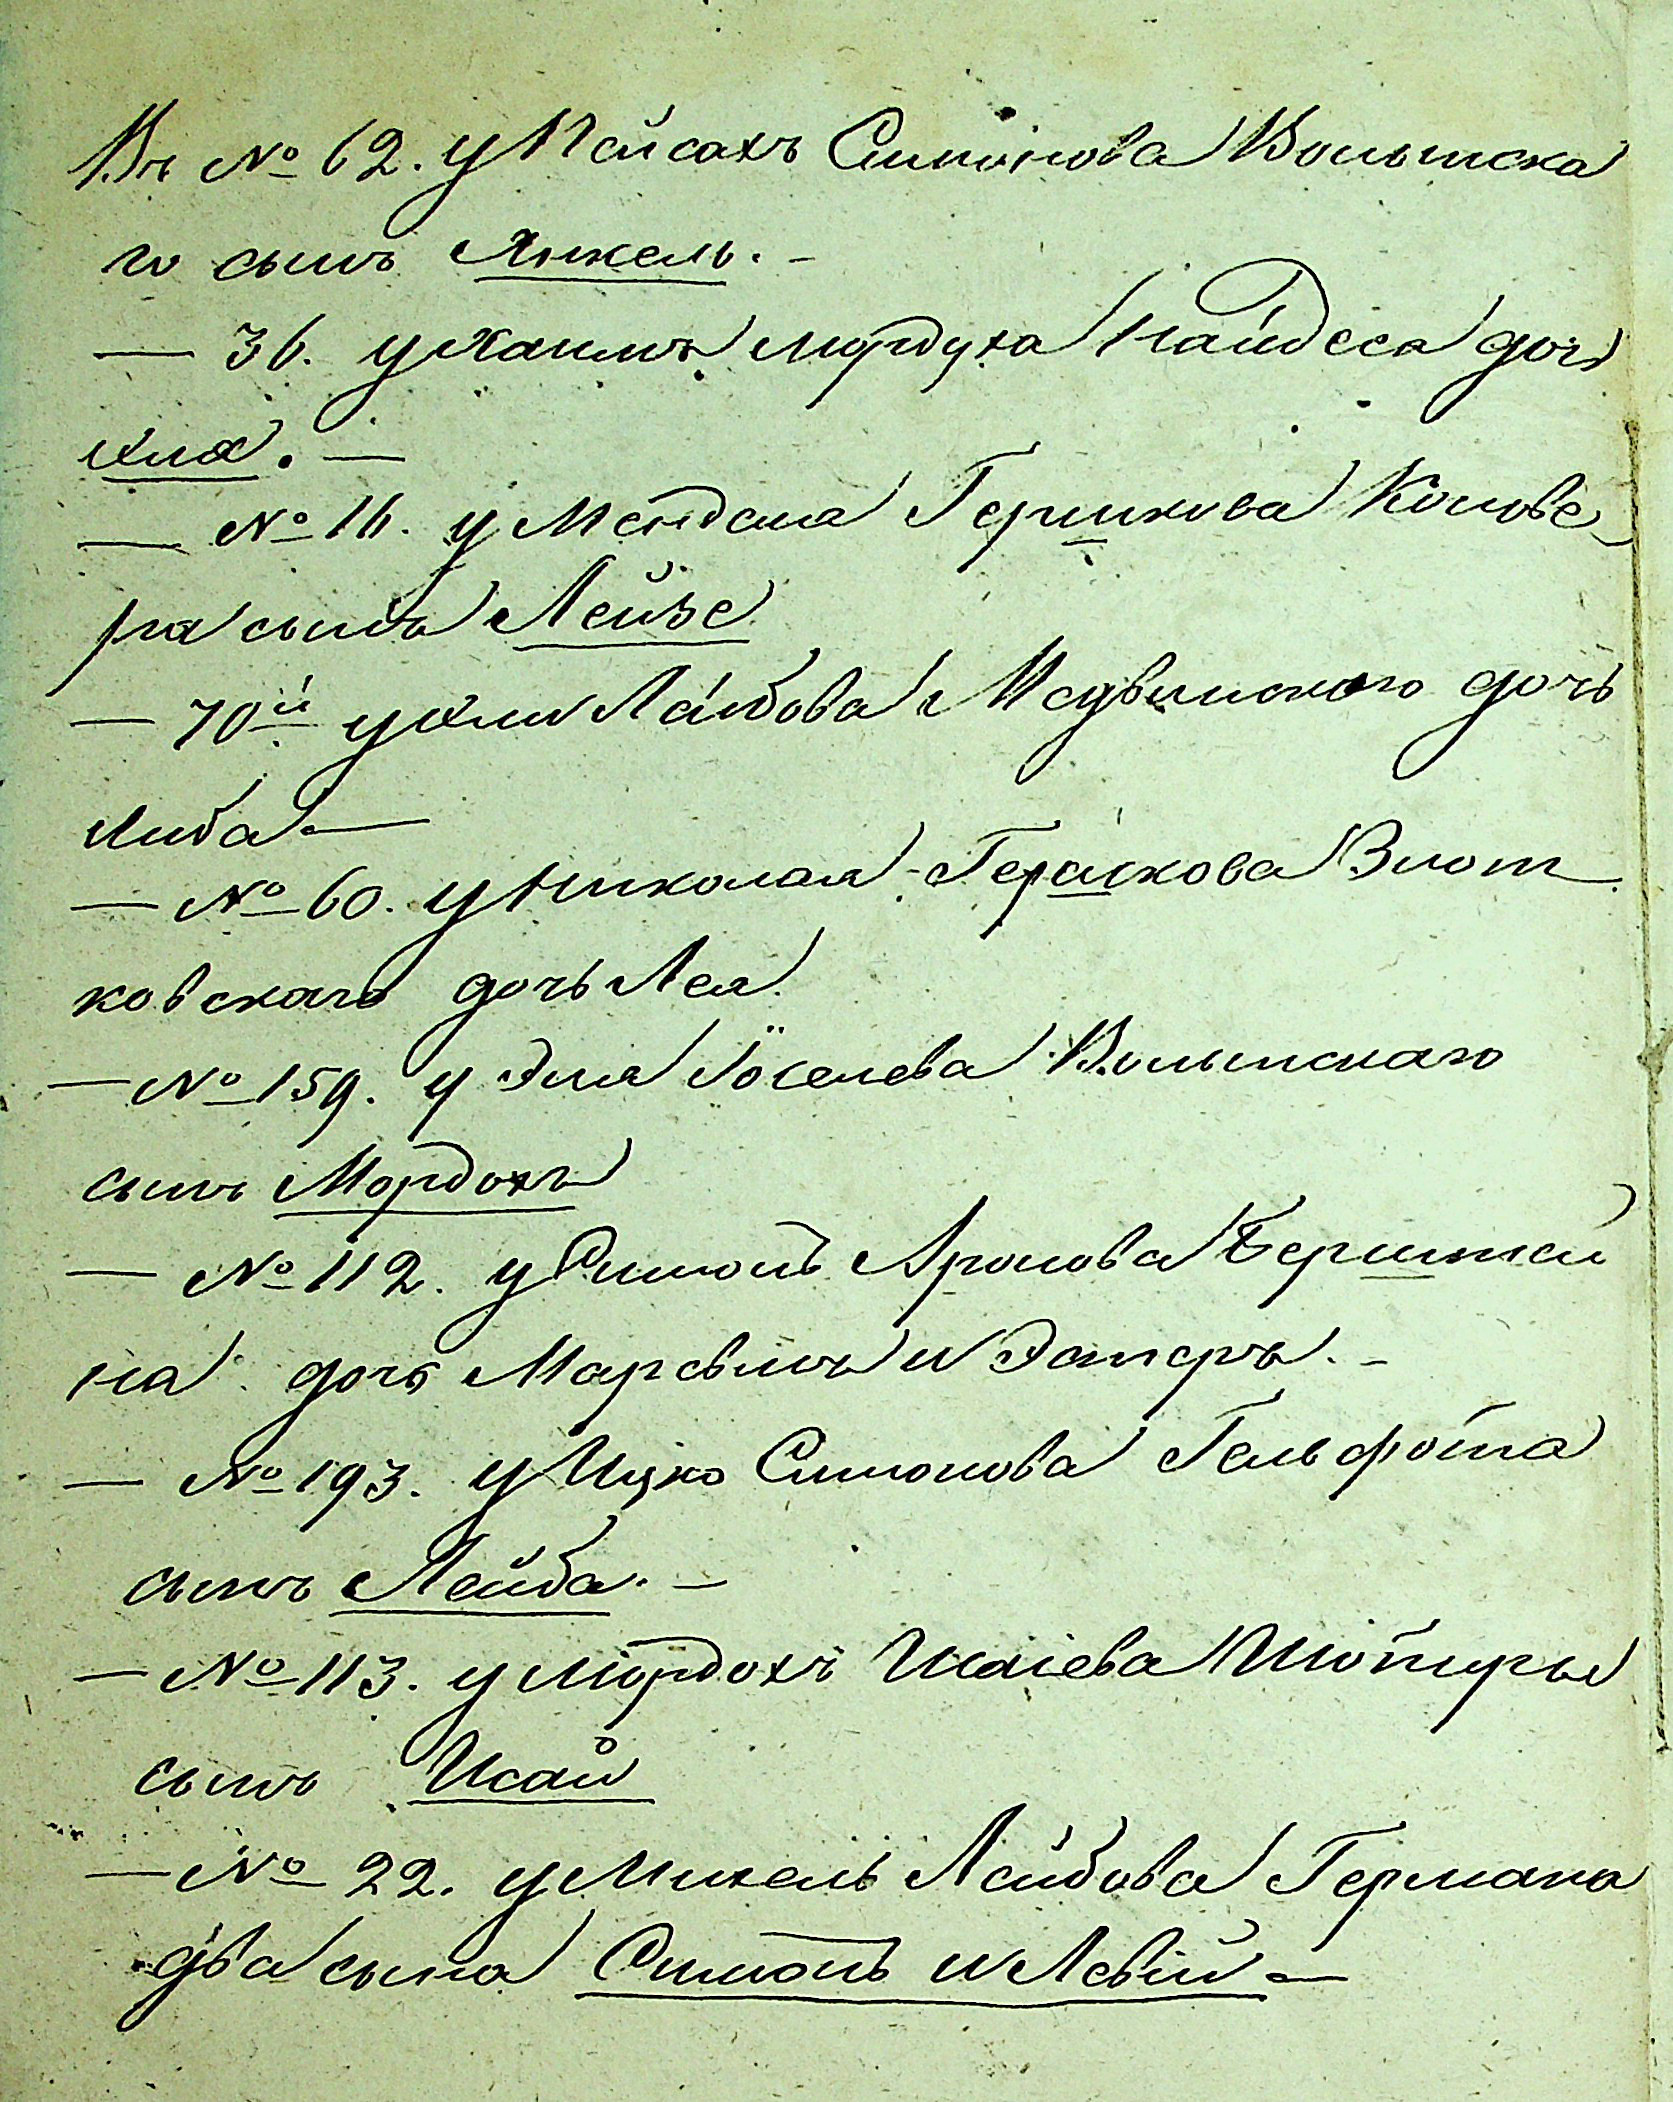 Въ № 62. у Пейсахъ Симонова Волынска
го сынъ Янкель. —
— 36. у Хаимъ Мордуха Найдеса дочь
Хая. —
— № 16. у Менделя Гершкова Коцове
ра сынъ Лейзе
— 70й у Эли Лейбова Медвинского дочь
Либа —
— № 60. у Николая Гершкова Злот
ковскаго дочь Лея
— № 159. у Эля Іоселева Волынскаго
сынъ Мордохъ
— № 112. у Симонъ Аронова Берштей
на дочь Марсъимъ и Эстеръ. —
— № 193. у Ицко Симонова Гельфота
сынъ Лейба. —
— № 113. у Мордохъ Исаіева
сынъ Исай
— № 22. у Михель Лейбова Германа
два сына Симонъ и Левій —